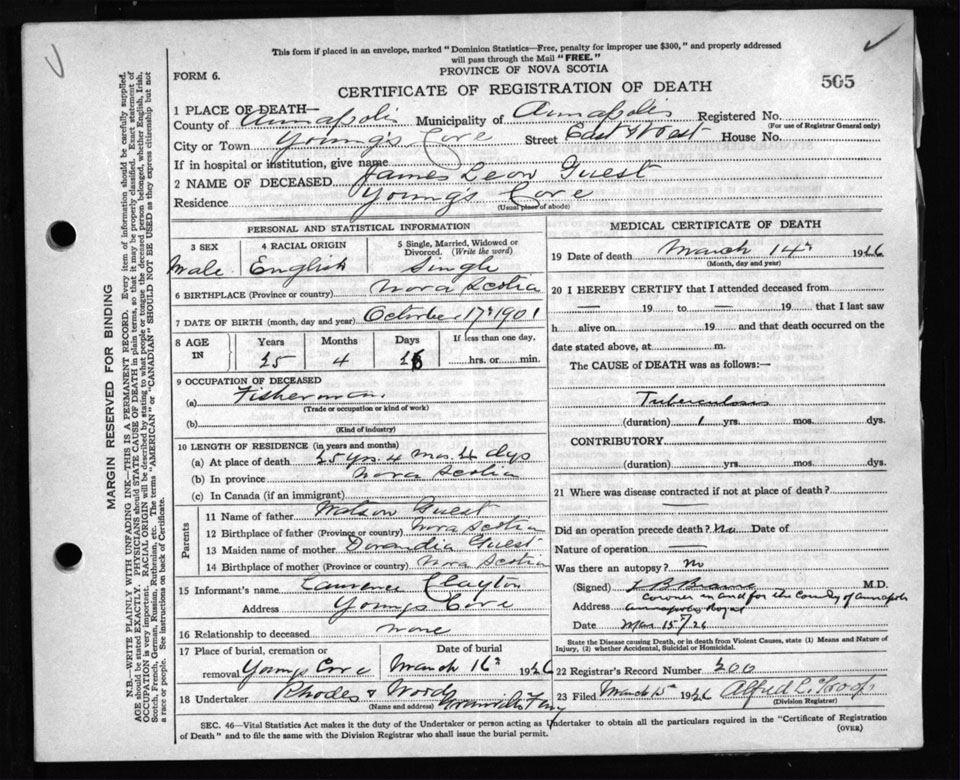 This form if placed in an envelope, marked "Dominion Statistics—Free, penalty for improper use $300," and properly addressed
will pass through the Mail "FREE."
FORM 6.
PROVINCE OF NOVA SCOTIA
CERTIFICATE OF REGISTRATION OF DEATH
505
1 PLACE OF DEATH—
County of Annapolis Municipality of Annapolis Registered No.
(For use of Registrar General only)
City or Town Young's Cove Street East & West House No.
If in hospital or institution, give name
2 NAME OF DECEASED James Leon Guest
Residence Young's Cove
(Usual place of abode)
PERSONAL AND STATISTICAL INFORMATION
3 SEX 4 RACIAL ORIGIN 5 Single, Married, Widowed or Divorced. (Write the word)
Male English Single
6 BIRTHPLACE (Province or country) Nova Scotia
7 DATE OF BIRTH (month, day and year) October 17th 1901
8 AGE IN Years Months Days If less than one day,
25 4 hrs. or min.
9 OCCUPATION OF DECEASED
(a) Fisherman
(Trade or occupation or kind of work)
(b)
(Kind of industry)
10 LENGTH OF RESIDENCE (in years and months)
(a) At place of death 25 yrs. 4 mos. dys
(b) In province Nova Scotia
(c) In Canada (if an immigrant)
Parents
11 Name of father Watson Guest
12 Birthplace of father (Province or country) Nova Scotia
13 Maiden name of mother Guest
14 Birthplace of mother (Province or country) Nova Scotia
15 Informant's name Laurence Clayton
Address Young's Cove
16 Relationship to deceased none
17 Place of burial, cremation or removal Young's Cove
Date of burial
March 16th 1926
18 Undertaker Rhodes & Wood Granville Ferry
(Name and address)
MEDICAL CERTIFICATE OF DEATH
19 Date of death March 14th 1926
(Month, day and year)
20 I HEREBY CERTIFY that I attended deceased from
— 19 to — 19 that I last saw
h alive on 19 and that death occurred on the
date stated above, at m.
The CAUSE of DEATH was as follows:—
Tuberculosis
(duration) 1 yrs. mos. dys.
CONTRIBUTORY
(duration) yrs. mos. dys.
21 Where was disease contracted if not at place of death?
—
Did an operation precede death? No Date of
Nature of operation —
Was there an autopsy? No
(Signed) L B Braine M.D.
Coroner in and for the County of Annapolis
Address Annapolis Royal
Date Mar 15th/26
State the Disease causing Death, or in death from Violent Causes, state (1) Means and Nature of
Injury, (2) whether Accidental, Suicidal or Homicidal.
22 Registrar's Record Number 200
23 Filed March 15th 1926 Alfred L.
(Division Registrar)
SEC. 46—Vital Statistics Act makes it the duty of the Undertaker or person acting as Undertaker to obtain all the particulars required in the "Certificate of Registration
of Death" and to file the same with the Division Registrar who shall issue the burial permit.
(OVER)
MARGIN RESERVED FOR BINDING
N.B.—WRITE PLAINLY WITH UNFADING INK—THIS IS A PERMANENT RECORD. Every item of information should be carefully supplied.
AGE should be stated EXACTLY. PHYSICIANS should STATE CAUSE OF DEATH in plain terms, so that it may be properly classified. Exact statement of
OCCUPATION is very important. RACIAL ORIGIN will be described by stating to what people or tongue the deceased person belonged, whether English, Irish,
Scotch, French, German, Russian, Ruthenian, etc. The terms "AMERICAN" or "CANADIAN" SHOULD NOT BE USED as they express citizenship but not
a race or people. See instructions on back of Certificate.